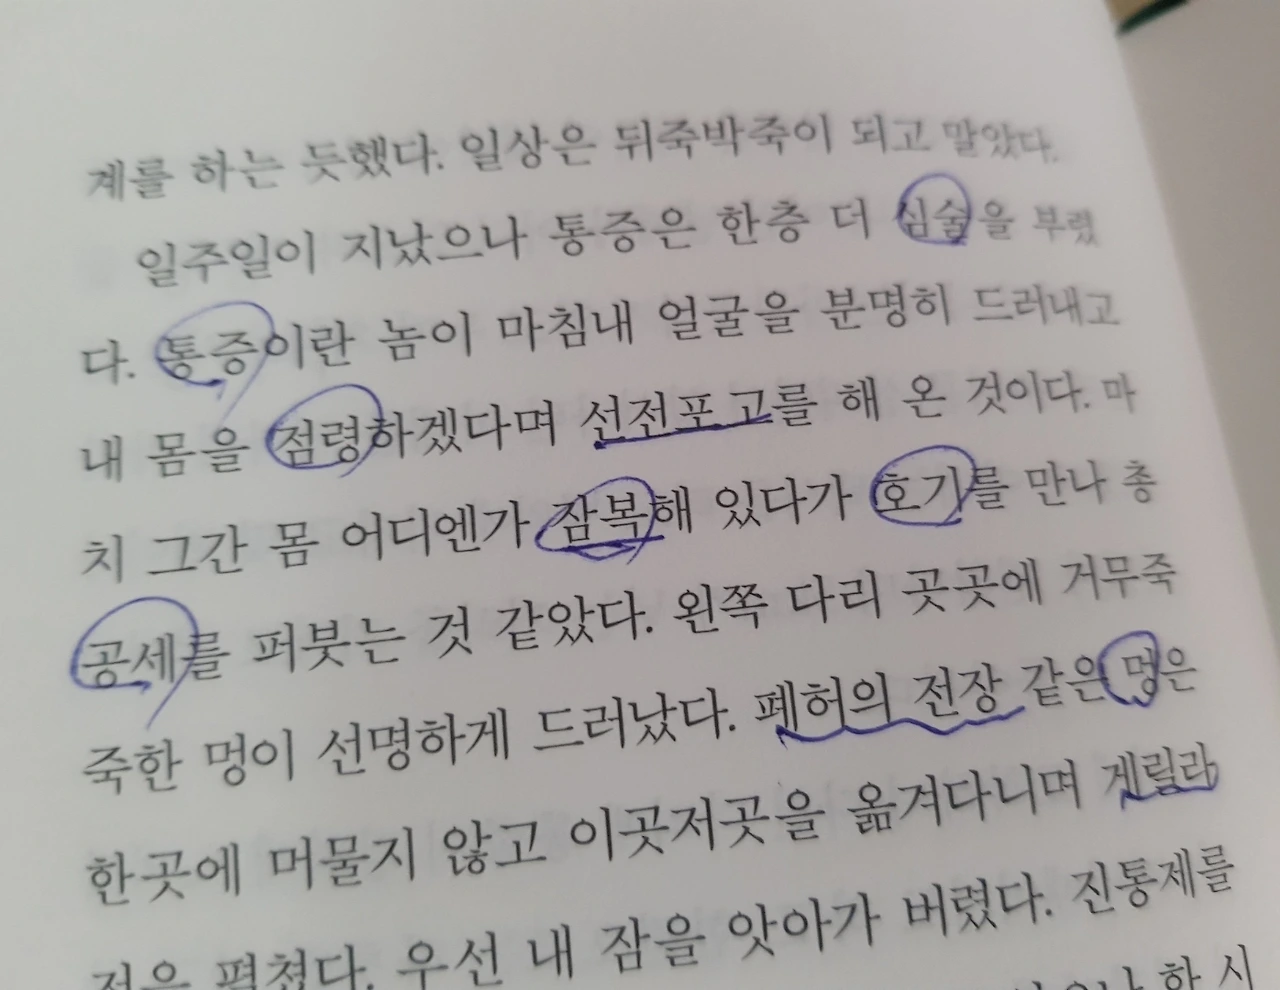 계를 하는 듯했다. 일상은 뒤죽박죽이 되고 말았다.
일주일이 지났으나 통증은 한층 더 심술을 부렸
다. 통증이란 놈이 마침내 얼굴을 분명히 드러내고
내 몸을 점령하겠다며 선전포고를 해 온 것이다. 마
치 그간 몸 어디엔가 잠복해 있다가 호기를 만나 총
공세를 퍼붓는 것 같았다. 왼쪽 다리 곳곳에 거무죽
죽한 멍이 선명하게 드러났다. 폐허의 전장 같은 멍은
한곳에 머물지 않고 이곳저곳을 옮겨다니며 게릴라
전을 펼쳤다. 우선 내 잠을 앗아가 버렸다. 진통제를
한 시